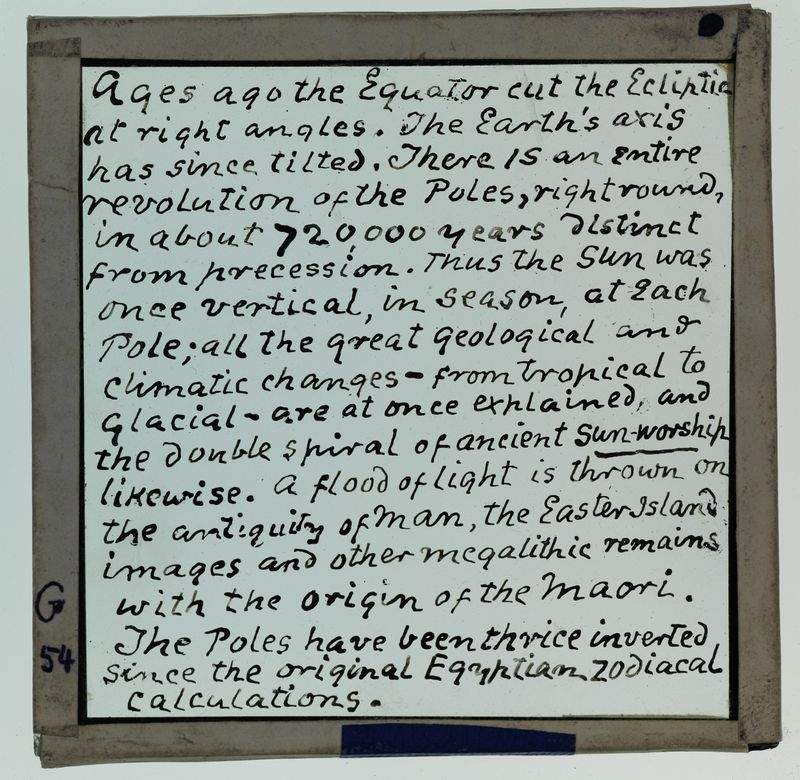 Ages ago the Equator cut the Ecliptic
at right angles. The Earth's axis
has since tilted. There is an entire
revolution of the Poles, right round,
in about 720,000 years distinct
from precession. Thus the Sun was
once vertical, in season, at each
Pole; all the great geological and
climatic changes - from tropical to
glacial - are at once explained, and
the double spiral of ancient Sun-worship
likewise. A flood of light is thrown on
the antiquity of Man, the Easter Island
images and other megalithic remains
with the origin of the Maori.
The Poles have been thrice inverted
since the original Egyptian zodiacal
calculations.
G
54